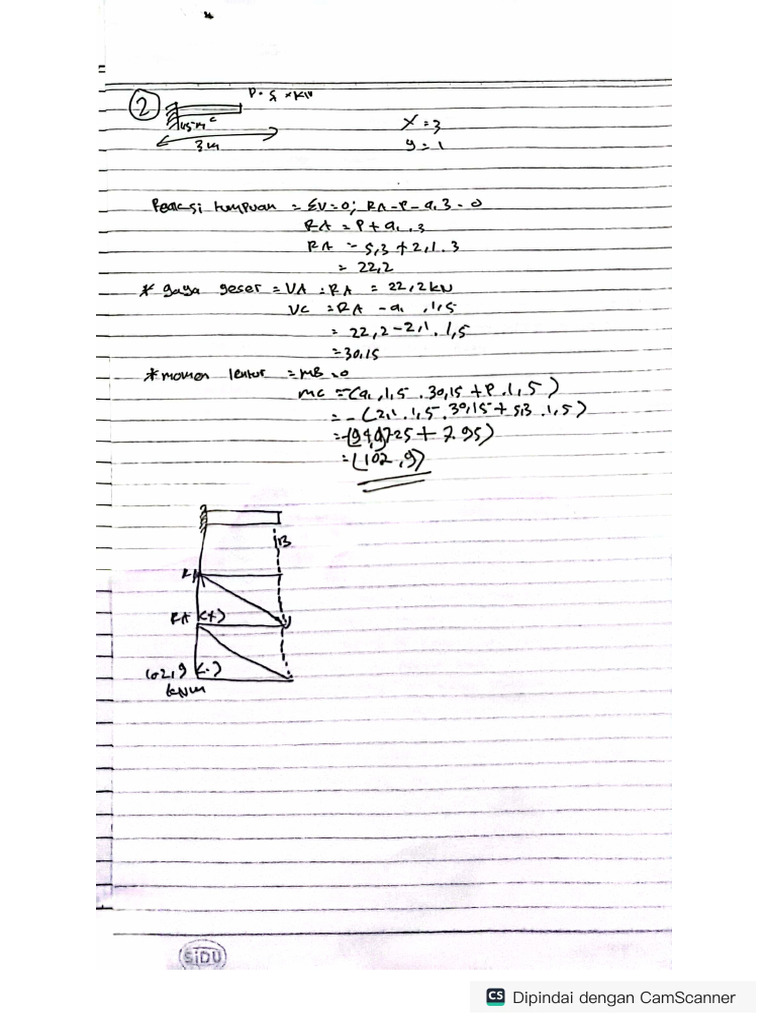 2
P = 5 x KN
1,5 m C
3 m
X = 3
y = 1
Reaksi tumpuan = ΣV=0; RA - P - q.3 = 0
RA = P + q . 3
RA = 5,3 + 2,1 . 3
= 22,2
* gaya geser = VA = RA = 22,2 kN
VC = RA - q . 1,5
= 22,2 - 2,1 . 1,5
= 30,15
* momen lentur = MB = 0
MC = -(q . 1,5 . 30,15 + P . 1,5)
= -(2,1 . 1,5 . 30,15 + 5,3 . 1,5)
= -(94,9725 + 7.95)
= (102,9)
B
RA (+)
102,9 (-)
kNm
SiDU
CS Dipindai dengan CamScanner